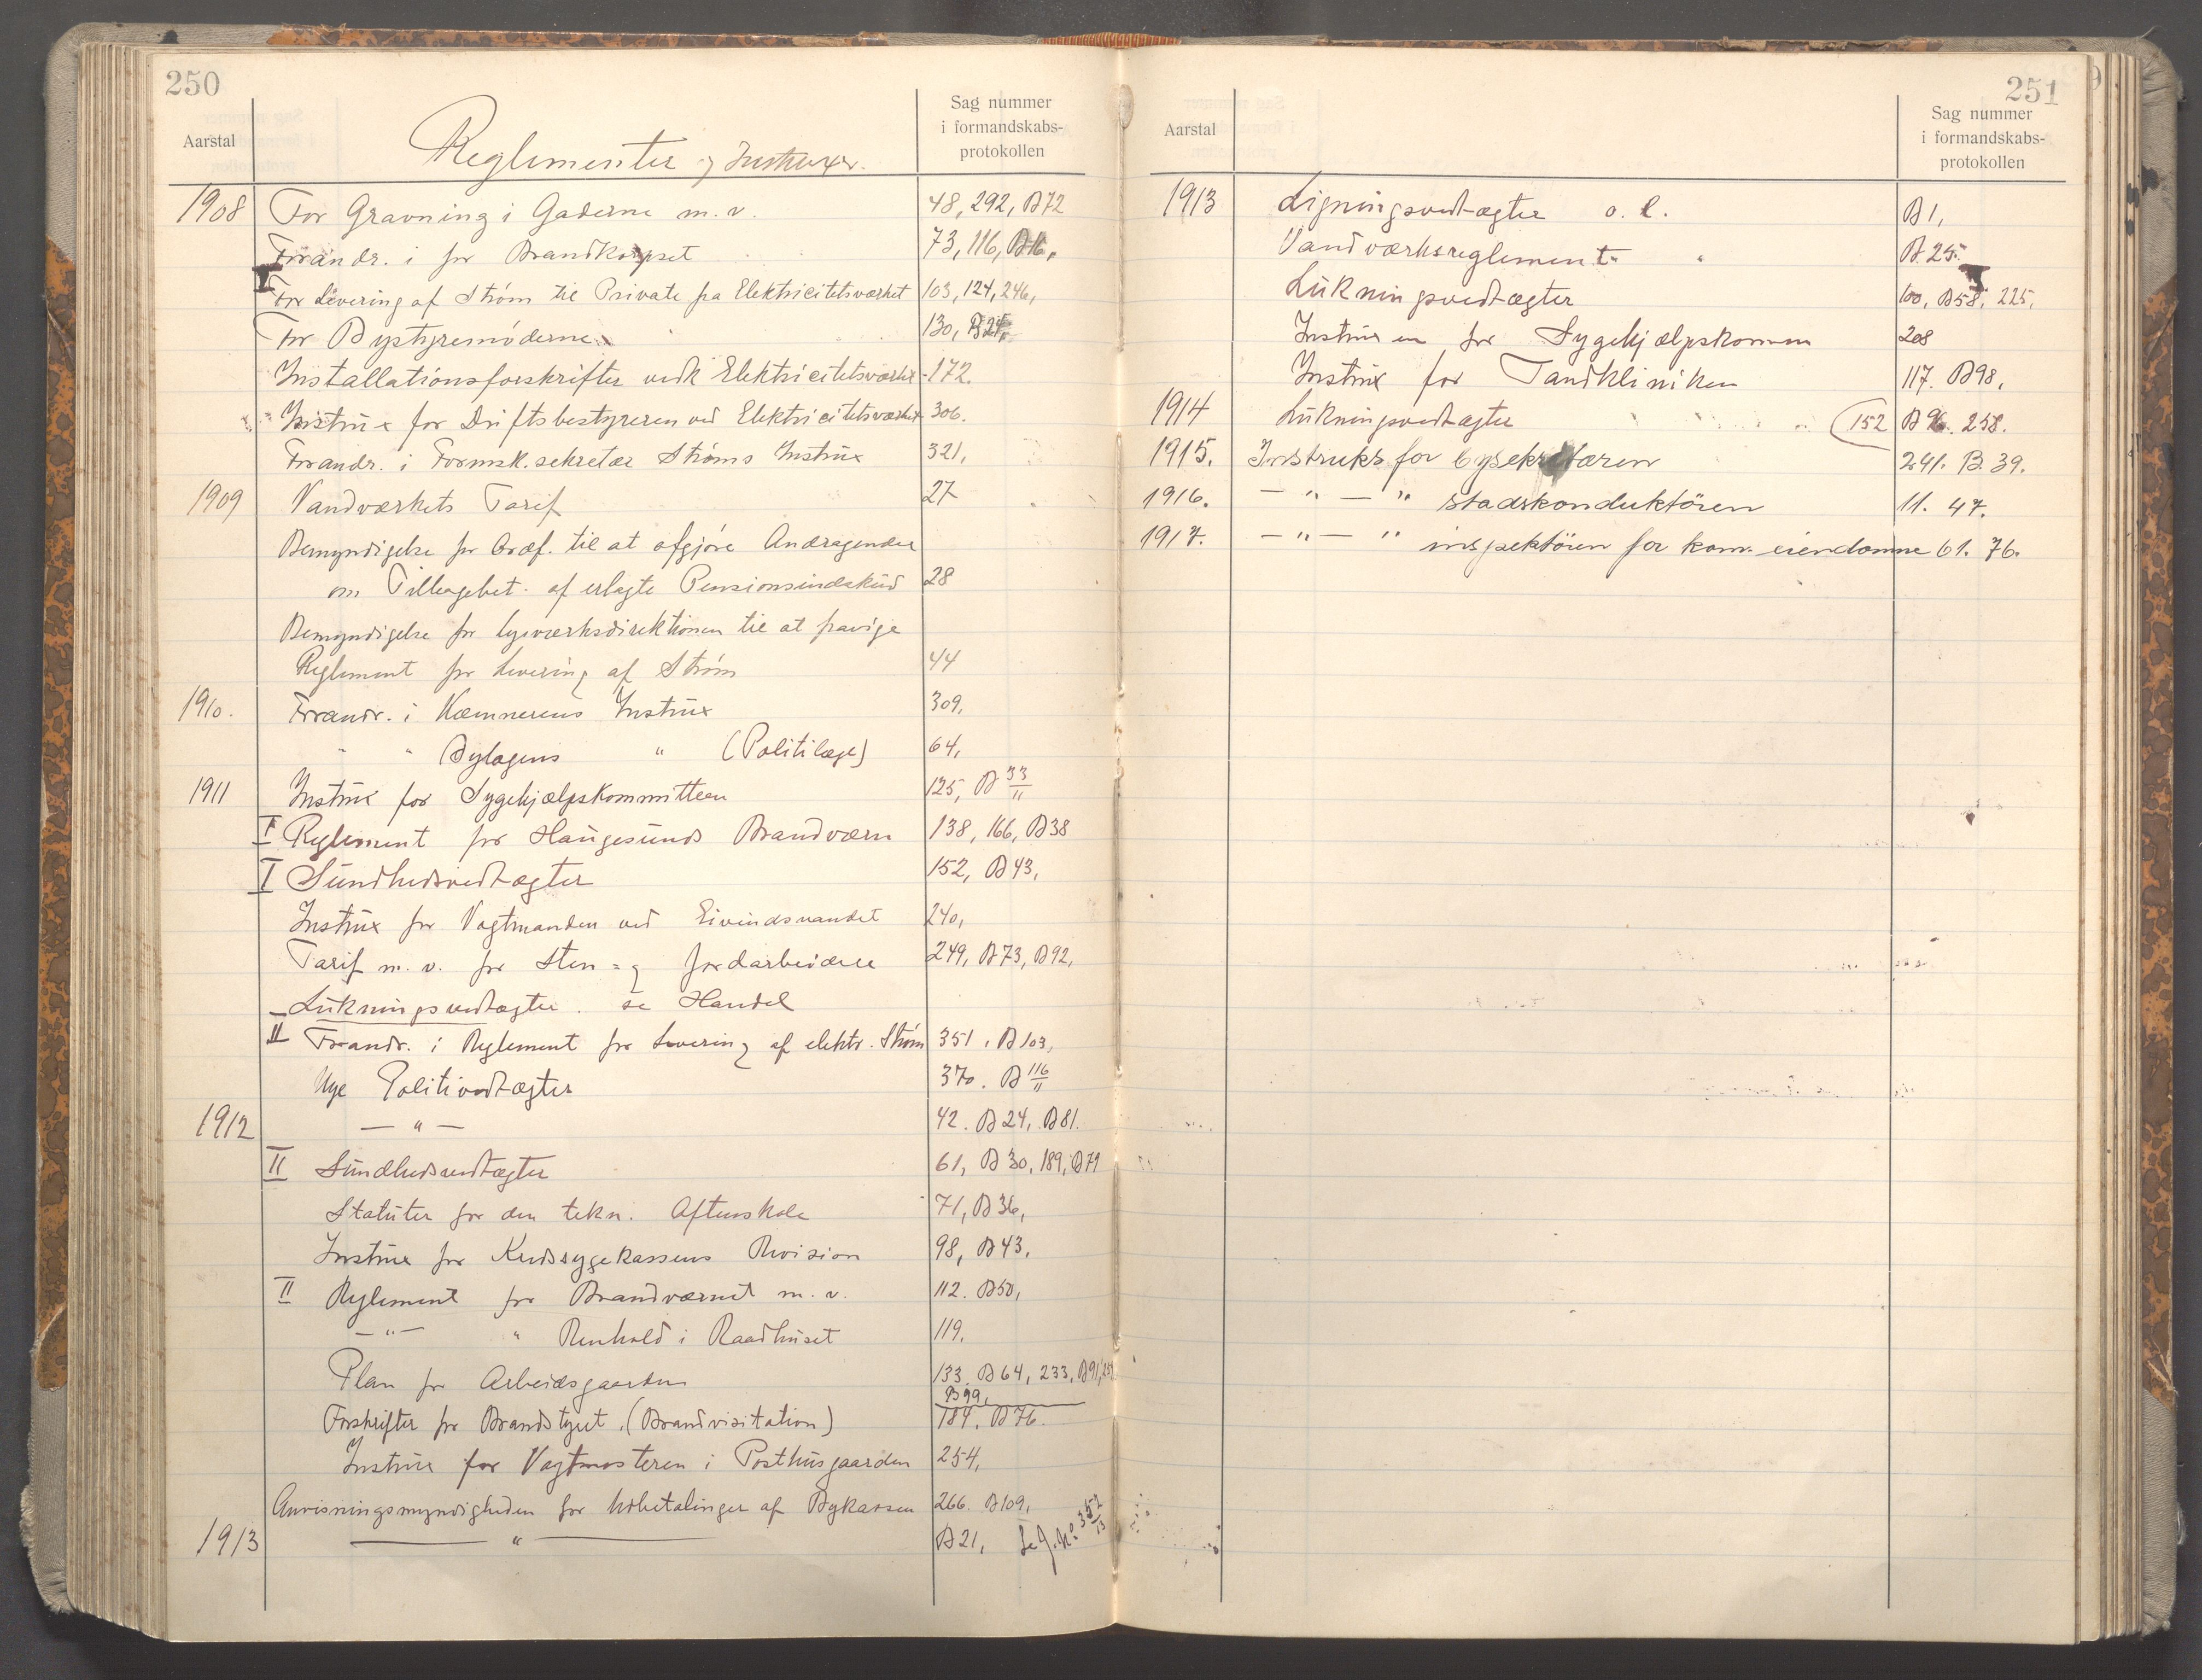 250
Aarstal
Reglementer og Instruxer.
Sag nummer
i formandskabs-
protokollen
1908 For Gravning i Gaderne m. v. 48, 292, B72
Forandr. i for Brandkorpset 73, 116, B16,
I For Levering af Strøm til Private fra Elektricitetsværket 103, 124, 246,
For Bystyremøderne 130, B24,
Installationsforskrifter vedk Elektricitetsværket 172.
Instrux for Driftsbestyreren ved Elektricitetsværket 306.
Forandr. i Formsk.sekretær Strøms Instrux 321,
1909 Vandværkets Tarif 27
Bemyndigelse for Ordf. til at afgjøre Andragender
om Tilbagebet. af erlagte Pensionsindskud 28
Bemyndigelse for lysværksdirektionen til at fravige
Reglement for Levering af Strøm 44
1910. Forandr. i Kæmnerens Instrux 309,
" " Bylægens " (Politilæge) 64,
1911 Instrux for Sygehjælpskommitteen 125, B 33/11
I Reglement for Haugesunds Brandværn 138, 166, B38
I Sundhedsvedtægter 152, B43,
Instrux for Vagtmanden ved Eivindsvandet 240,
Tarif m. v. for Sten= og Jordarbeidere 249, B73, B92,
Lukningsvedtægter. se Handel
II Forandr. i Reglement for Levering af elektr. Strøm 351, B103,
Nye Politivedtægter 370. B 116/11
1912 — " — 42. B24, B81.
II Sundhedsvedtægter 61, B30, 189, B79
Statuter for den tekn. Aftenskole 71, B36,
Instrux for Kredssygekassens Revision 98, B43,
II Reglement for Brandværnet m. v. 112. B50,
— " — " Renhold i Raadhuset 119.
Plan for Arbeidsgaarden 133, B64, 233, B91,
B99,
Forskrifter for Brandstyret. (Brandvisitation) 184, B76.
Instrux for Vagtmesteren i Posthusgaarden 254,
Anvisningsmyndigheden for Udbetalinger af Bykassen 266. B109,
1913 — " — B21, Se J. No. 352/13
251
Aarstal
Sag nummer
i formandskabs-
protokollen
1913 Ligningsvedtægter o. l. B1,
Vandværksreglement " B.25.
Lukningsvedtægter 100, B58, 225,
Instrux en for Sygehjælpskomm 208
Instrux for Tandkliniken 117. B98,
1914 Lukningsvedtægter 152 B96. 258.
1915. Instruks for bysekretæren 241. B. 39.
1916. — " — " stadskonduktören 11. 47.
1917. — " — " inspektören for kom. eiendomme 61. 76.